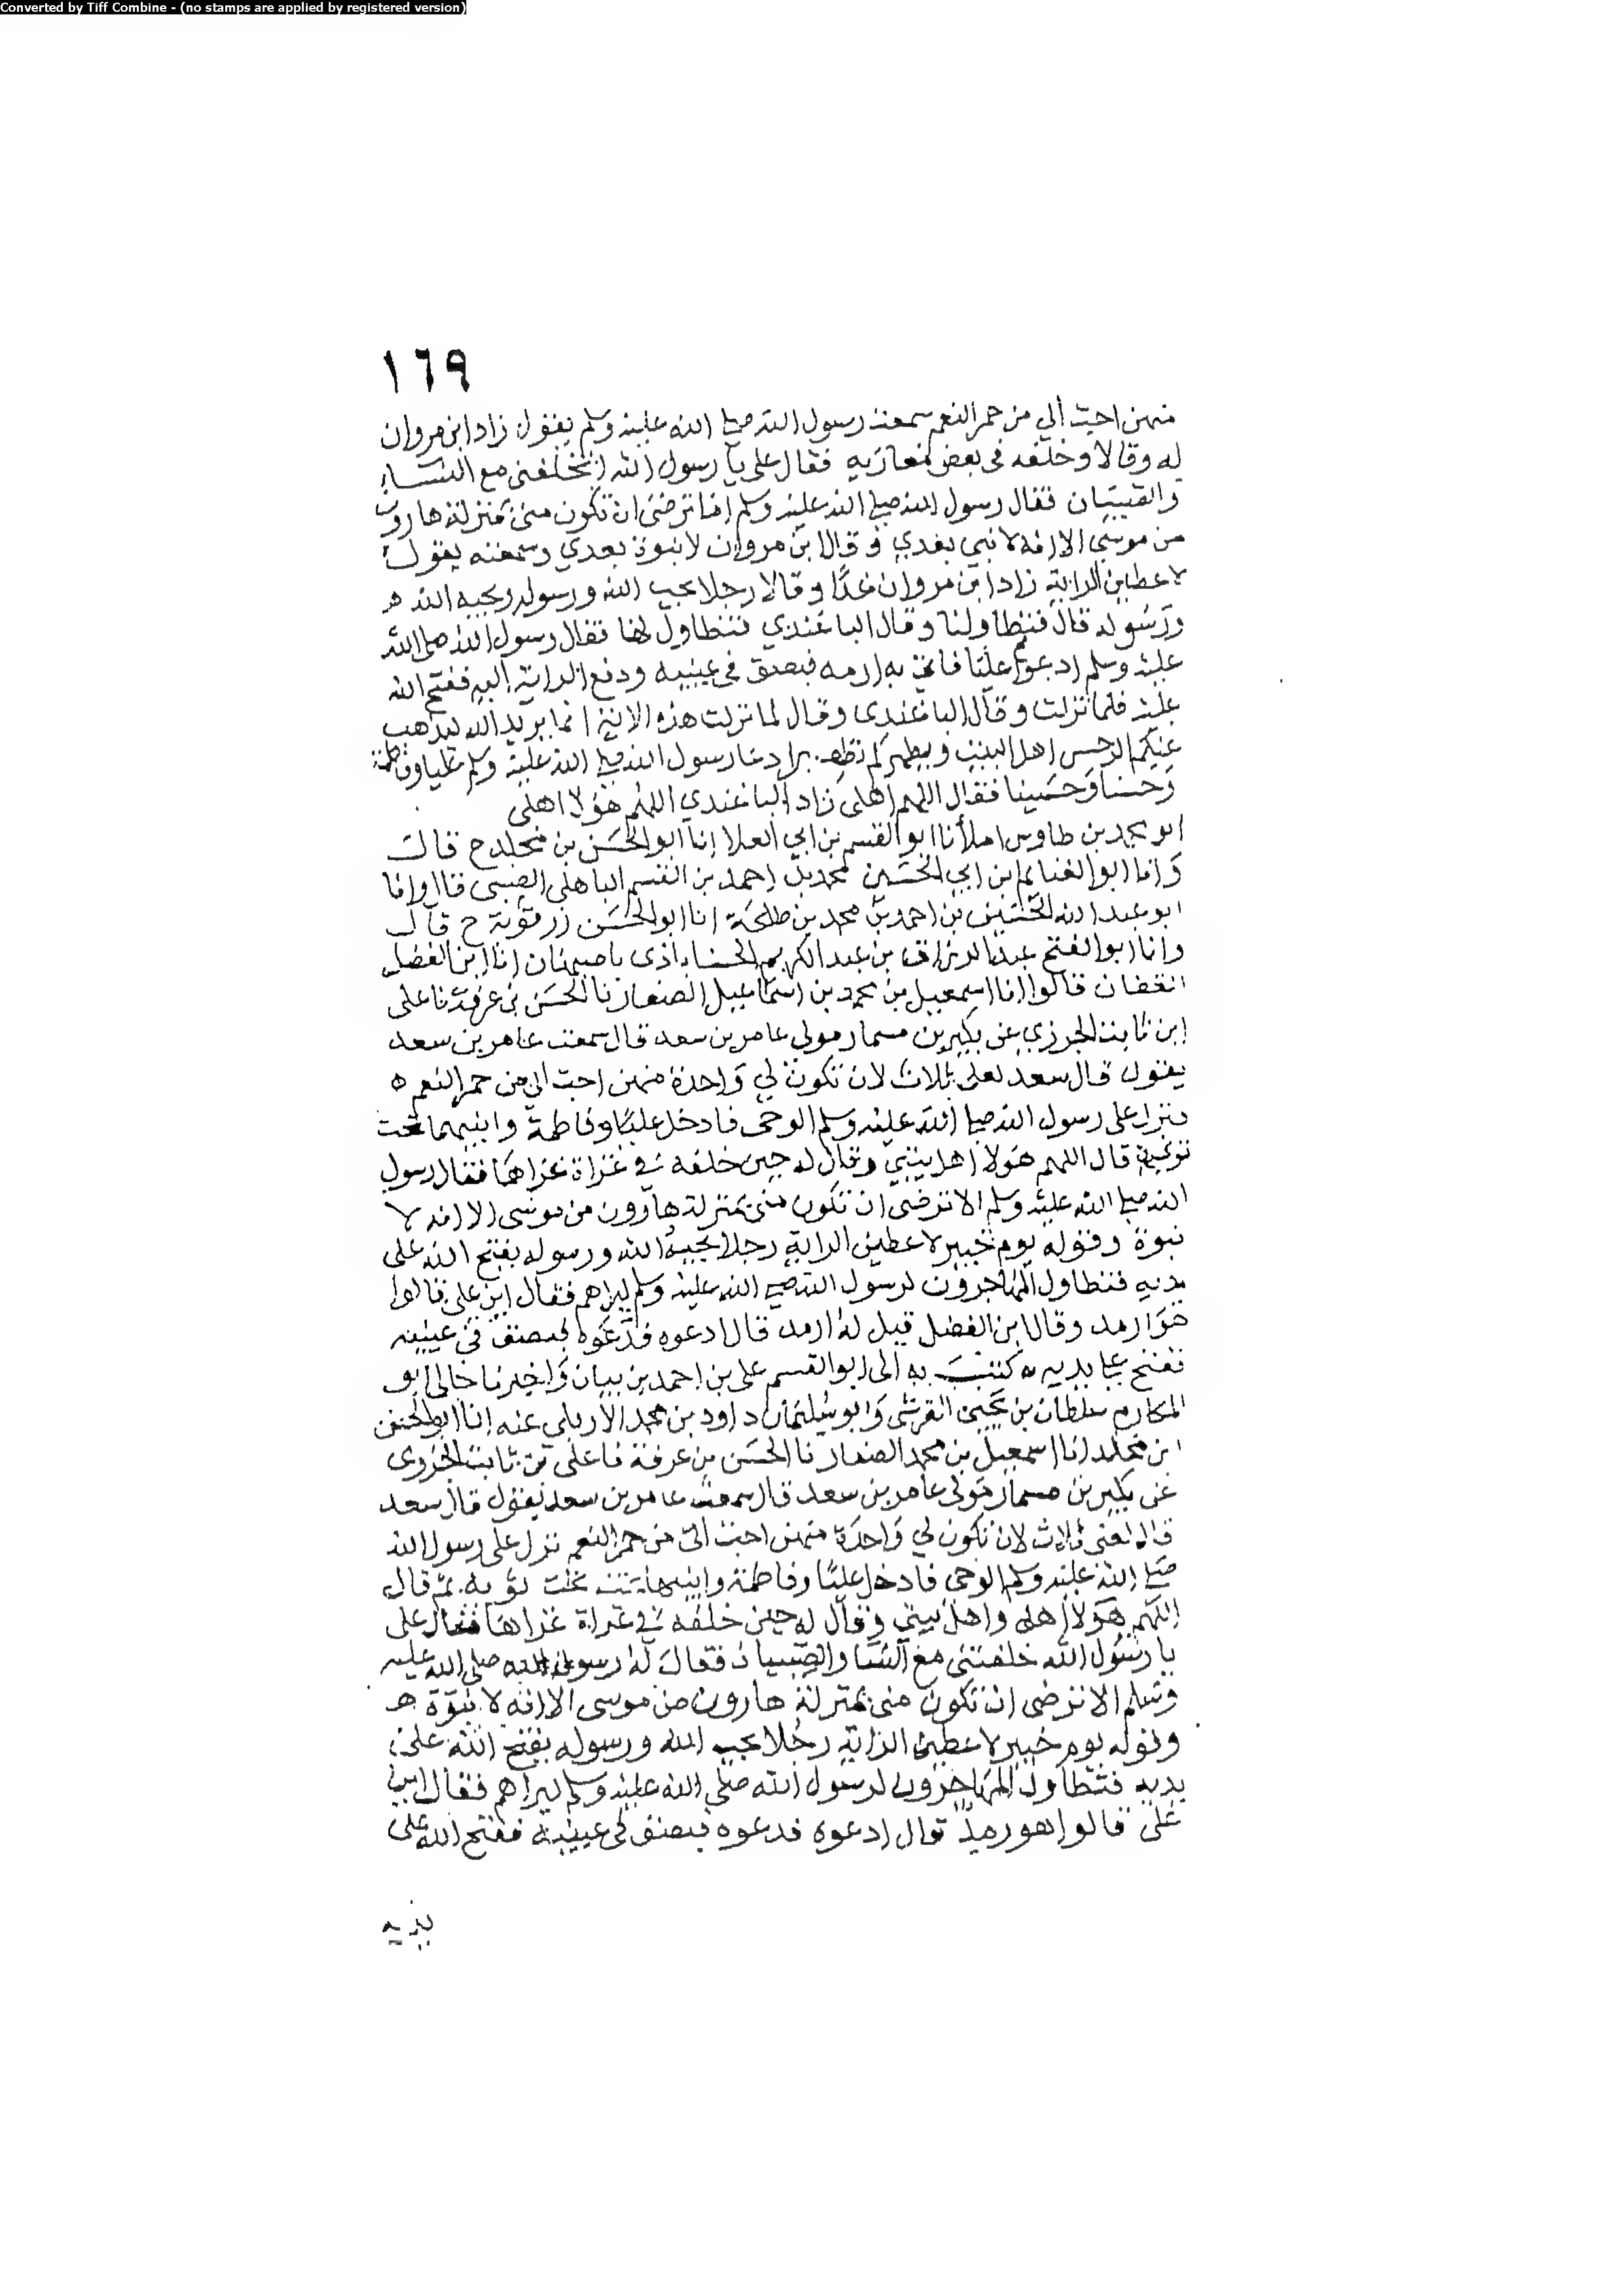 Converted by Tiff Combine - (no stamps are applied by registered version)
١٦٩
منهن احب الي من حمر النعم سمعت رسول الله صلى الله عليه وسلم يقول زاد ابن مروان
له وقالا وخلفه في بعض مغازيه فقال علي يا رسول الله اتخلفني مع النساء
والصبيان فقال رسول الله صلى الله عليه وسلم اما ترضى ان تكون مني بمنزلة هارون
من موسى الا انه لا نبي بعدي وقال ابن مروان لا نبوة بعدي وسمعته يقول
لاعطين الراية زاد ابن مروان غدًا وقالا رجلا يحب الله ورسوله ويحبه الله
ورسوله قال فتطاولنا وقال الباغندي فتطاول لها فقال رسول الله صلى الله
عليه وسلم ادعوا عليا فاتي به ارمد فبصق في عينيه ودفع الراية اليه ففتح الله
عليه فلما نزلت وقال الباغندي وقال لما نزلت هذه الاية انما يريد الله ليذهب
عنكم الرجس اهل البيت ويطهركم تطهيرا دعا رسول الله صلى الله عليه وسلم عليا وفاطمة
وحسنا وحسينا فقال اللهم اهلي زاد الباغندي اللهم هؤلا اهلي
ابو محمد بن طاوس املأ نا ابو القسم بن ابي العلا انا ابو الحسن بن مخلد ح قال
وانا ابو الغنايم ابن ابي الحسين محمد بن احمد بن القسم الباهلي الضبي قالا وانا
ابو عبد الله الحسين بن احمد بن محمد بن طلحة انا ابو الحسن زرقوية ح قال
وانا ابو الفتح عبد الرزاق بن عبد الكريم الحسناباذي باصبهان انا ابن الفضل
القطان قالوا انا اسمعيل بن محمد بن اسماعيل الصفار نا الحسن بن عرفة نا علي
ابن ثابت الجزري عن بكير بن مسمار مولى عامر بن سعد قال سمعت عامر بن سعد
يقول قال سعد لعلي ثلاث لان تكون لي واحدة منهن احب الي من حمر النعم ه
نزل على رسول الله صلى الله عليه وسلم الوحي فادخل عليًا وفاطمة وابنيهما تحت
ثوبه ثم قال اللهم هولا اهل بيتي وقال له حين خلفه في غزاة غزاها فقال رسول
الله صلى الله عليه وسلم الا ترضى ان تكون مني بمنزلة هارون من موسى الا انه لا
نبوة وقوله يوم خيبر لاعطين الراية رجلا يحبه الله ورسوله يفتح الله على
يديه فتطاول المهاجرون لرسول الله صلى الله عليه وسلم ليراهم فقال اين علي قالوا
هو ارمد وقال ابن الفضل قيل له ارمد قال ادعوه فدعوه فبصق في عينيه
ففتح على يديه ه كتب به الى ابو القسم علي بن احمد بن بيان واخبرنا خالي ابو
المكارم سلطان بن يحيى القرشي وابو سليمان داود بن محمد الاربلي عنه انا ابو الحسن
ابن مخلد انا اسمعيل بن محمد الصفار نا الحسن بن عرفة نا علي بن ثابت الجزري
عن بكير بن مسمار مولى عامر بن سعد قال سمعت عامر بن سعد يقول قال سعد
قال لعلي ثلاث لان تكون لي واحدة منهن احب الي من حمر النعم نزل على رسول الله
صلى الله عليه وسلم الوحي فادخل عليًا وفاطمة وابنيهما تحت ثوبه ثم قال
اللهم هولا اهلي واهل بيتي وقال له حين خلفه في غزاة غزاها فقال علي
يا رسول الله خلفتني مع النسا والصبيان فقال له رسول الله صلى الله عليه
وسلم الا ترضى ان تكون مني بمنزلة هارون من موسى الا انه لا نبوة
وقوله يوم خيبر لاعطين الراية رجلا يحب الله ورسوله يفتح الله على
يديه فتطاول المهاجرون لرسول الله صلى الله عليه وسلم ليراهم فقال اين
علي قالوا هو رمد قال ادعوه فدعوه فبصق في عينيه ففتح الله على
يديه